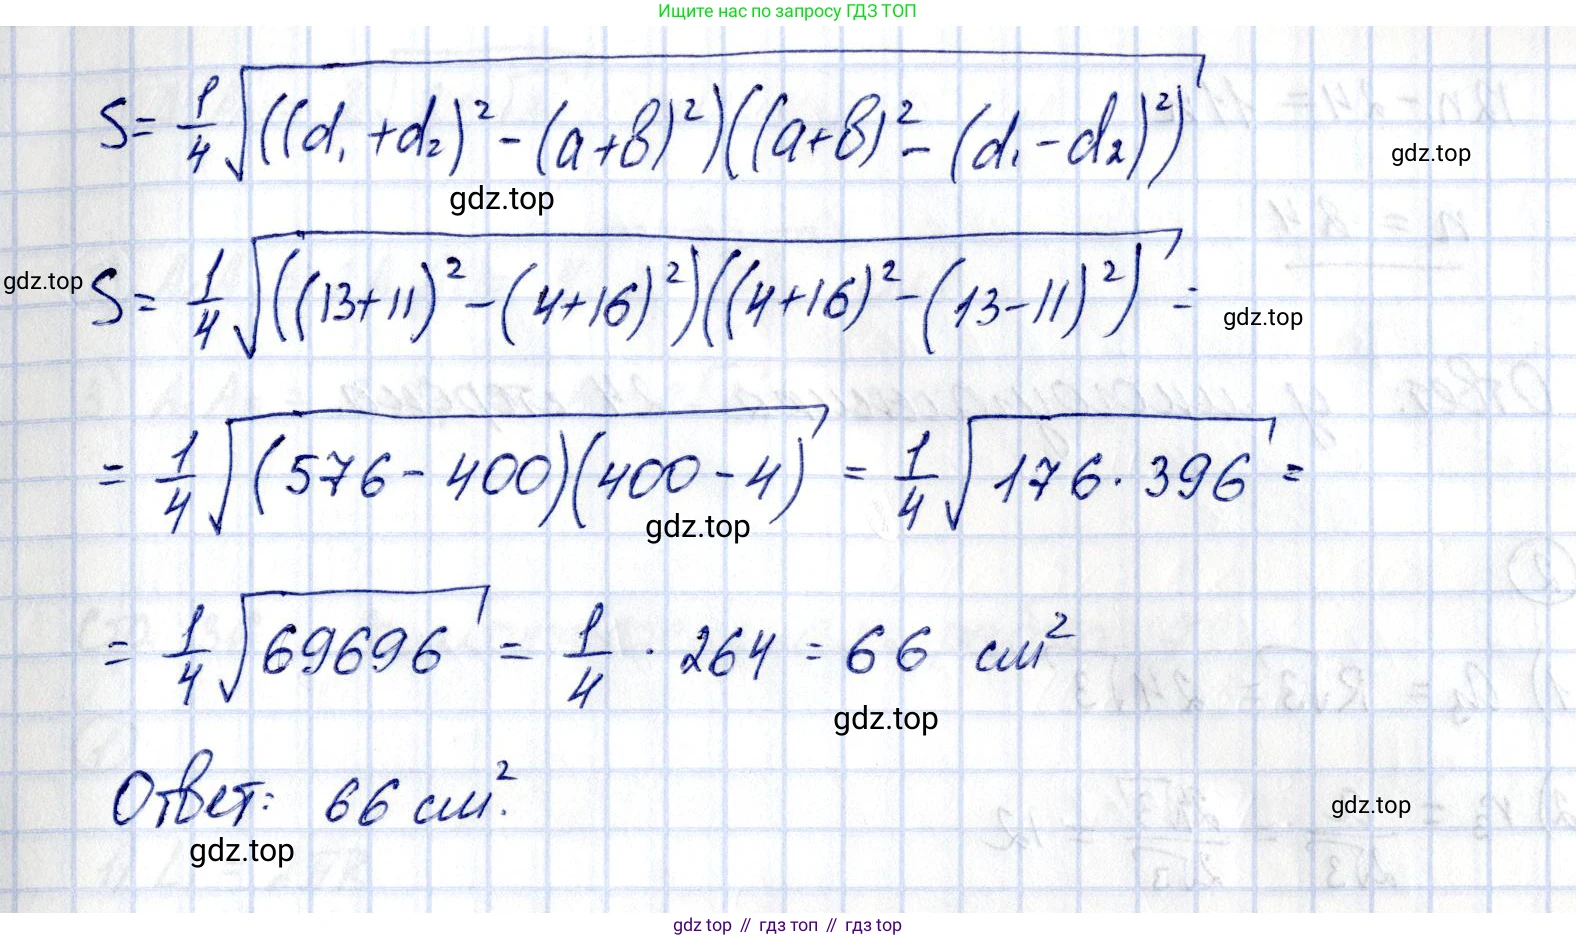 Ищите нас по запросу ГДЗ ТОП
S = 1/4 √((d₁ + d₂)² - (a + в)²)((a + в)² - (d₁ - d₂)²)
gdz.top
gdz.top
S = 1/4 √((13 + 11)² - (4 + 16)²)((4 + 16)² - (13 - 11)²) =
gdz.top
gdz.top
= 1/4 √(576 - 400)(400 - 4) = 1/4 √176 · 396 =
gdz.top
= 1/4 √69696 = 1/4 · 264 = 66 см²
gdz.top
Ответ: 66 см².
gdz.top
gdz.top
gdz top // гдз топ // гдз top